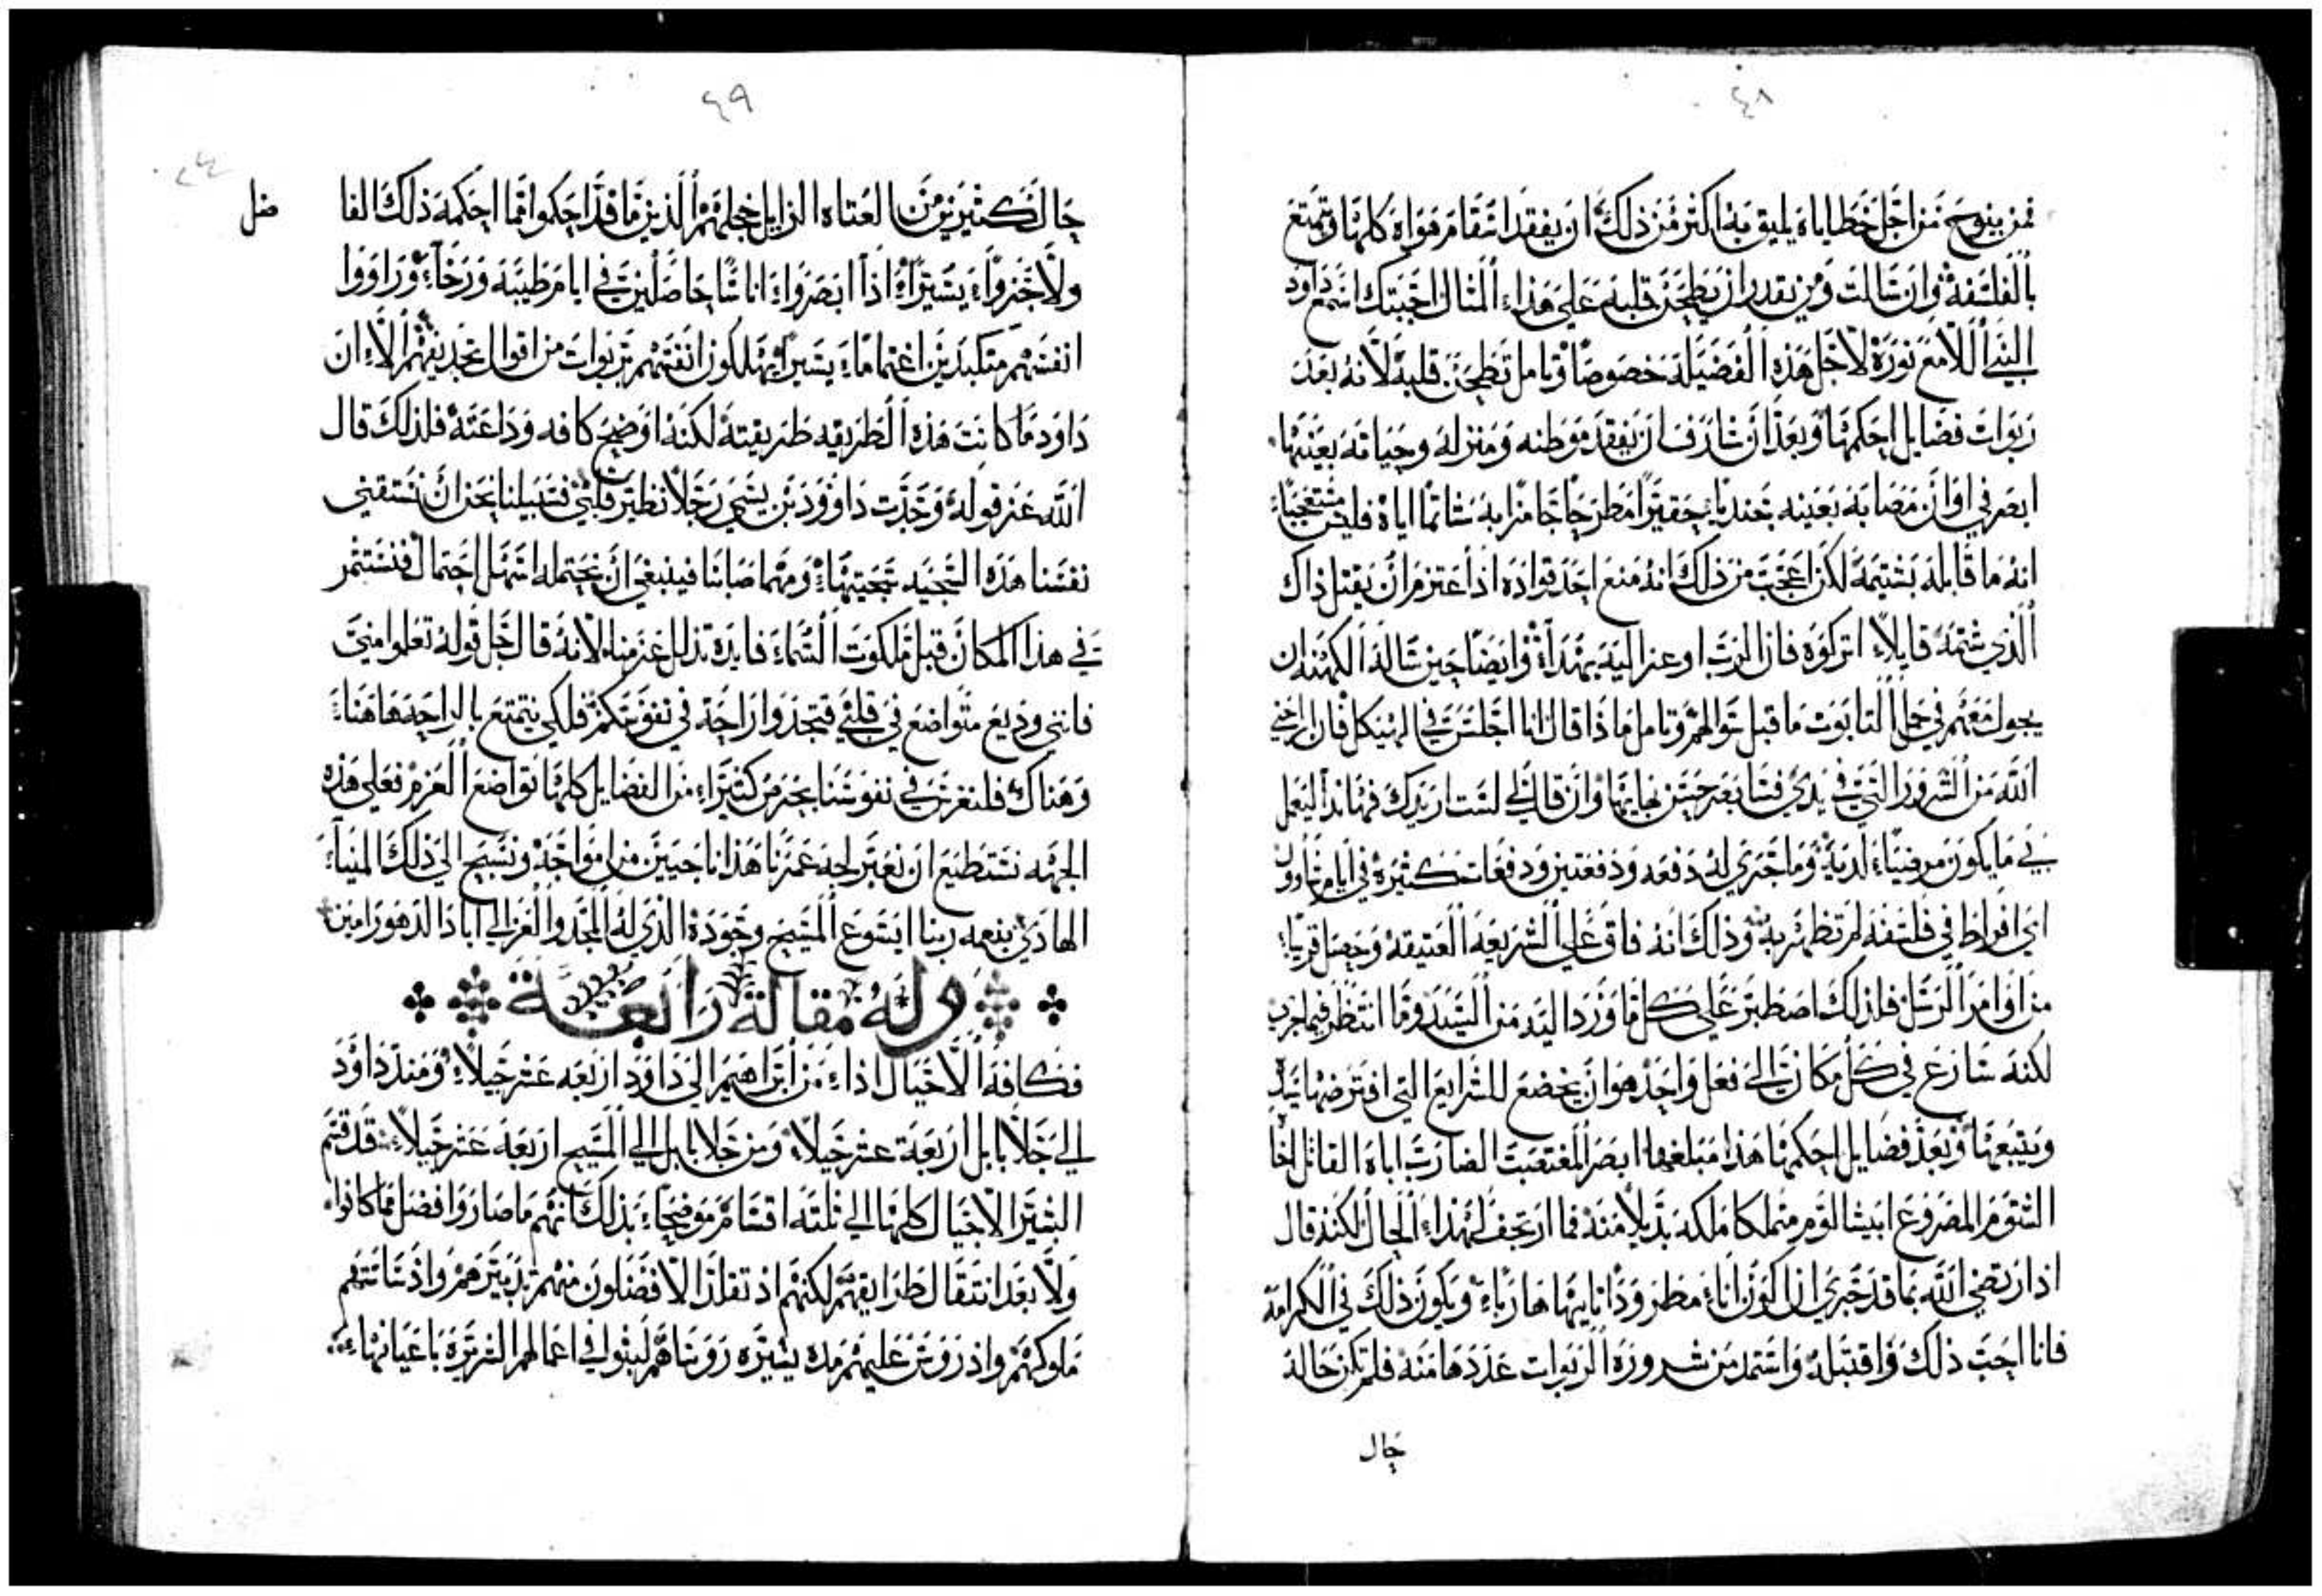 ٤٨
فمن ينوح من اجل خطاياه يليق به اكثر من ذلك ان يفقد انتقام هواه كلها ويتمتع
بالفلسفة وان سالت ومن يقدر ان يطحن قلبه علي هذا المثال اجبتك اسمع داود
النبي اللامع نوره لاجل هذه الفضيلة خصوصا وتامل تطحن قلبه لانه بعد
ربوات فضايل احكمها وبعد ان شارف ان يفقد موطنه ومنزله وحياته بعينها
ابصر في اوان مصابه بعينه جنديا حقيرا مطرحا جامزا به شاتما اياه فليس مستعجبا
انه ما قابله بشتيمة لكن اعجب من ذلك انه منع احد قواده اذ اعتزم ان يقتل ذاك
الذي شتمه قايلا اتركوه فان الرب اوعز اليه بهذا وايضا حين ساله الكهنه ان
يجول معهم في حمل التابوت ما قبل سوالهم وتامل ماذا قال انا اجلس في الهيكل فان ارحني
الله من الشرور التي في يدي فسابصر حسن بهايها وان قال لي لست اريدك فهانذا ليعمل
بي ما يكون مرضيا لديه وما جري له دفعه ودفعتين ودفعات كثيرة في ايام شاوول
اي افراط في فلسفه لم تظهر به وذلك انه فاق علي الشريعه العتيقه وحصل قريبا
من اوامر الرسل فلذلك اصطبر علي كل ما ورد اليه من السيد وما انتظر فيما جرب
لكنه سارع في كل مكان الي فعل واحد هو ان يخضع للشرايع التي افترضها سيده
ويتبعها وبعد فضايل احكمها هذا مبلغها ابصر المغتصبت الضارب اباه القاتل اخاه
الشتوم المصروع ابيشالوم متملكا ملكه بديلا منه فما ارتجف لهذا الحال لكنه قال
اذ ارتضي الله بما قد جري ان اكون انا مطرودا تايها هاربا ويكون ذلك في الكرامة
فانا احب ذلك واقتبله واستمد من شرور الربوات عددها منه فلم تكن حاله
حال
٤٩
٢٤
حال كثيرين من العتاه الزايل خجلهم الذين ما قد احكموا مما احكمه ذلك الفا ضل
ولا جزوا يسيرا اذا ابصروا اناسا حاصلين في ايام طيبه ورخا وراووا
انفسهم متكبدين اغتماما يسيرا يهلكون انفسهم بربوات من اقوال تجديفهم الا ان
داود ما كانت هذه الطريقه طريقته لكنه اوضح كافه وداعته فلذلك قال
الله عز قوله وجدت داوود بن يسي رجلا نظير قلبي فسبيلنا نحن ان نستقني
نفسنا هذه السجيه سجيتها ومهما صابنا فينبغي ان نحتمله اسهل احتمال فنستثمر
في هذا المكان قبل ملكوت السماء فايدة تذلل عزمنا لانه قال جل قوله تعلموا مني
فانني وديع متواضع في قلبي فتجدوا راحة في نفوسكم فلكي نتمتع بالراحه هاهنا
وهناك فلنغرس في نفوسنا بحرص كثيرا من الفضايل كلها تواضع العزم فعلي هذه
الجهه نستطيع ان نعبر لجه عمرنا هذا ناجيين من امواجه ونسبح الي ذلك المينا
الهادي بنعمه ربنا ايسوع المسيح وجوده الذي له المجد والعز الي اباد الدهور امين
وله مقالة رابعة
فكافة الاجيال اذا من ابراهيم الي داود اربعه عشر جيلا ومنذ داود
الي جلا بابل اربعة عشر جيلا ومن جلا بابل الي المسيح اربعة عشر جيلا قد قسم
البشير الاجيال كلها الي ثلثه اقسام موضحا بذلك انهم ما صاروا افضل مما كانوا
ولا بعد انتقال طرايقهم لكنهم اذ تقلد الافضلون منهم تدبيرهم واذ ساستهم
ملوكهم واذ روس عليهم مدة يسيره روساهم لبثوا في اعمالهم الشريره باعيانها